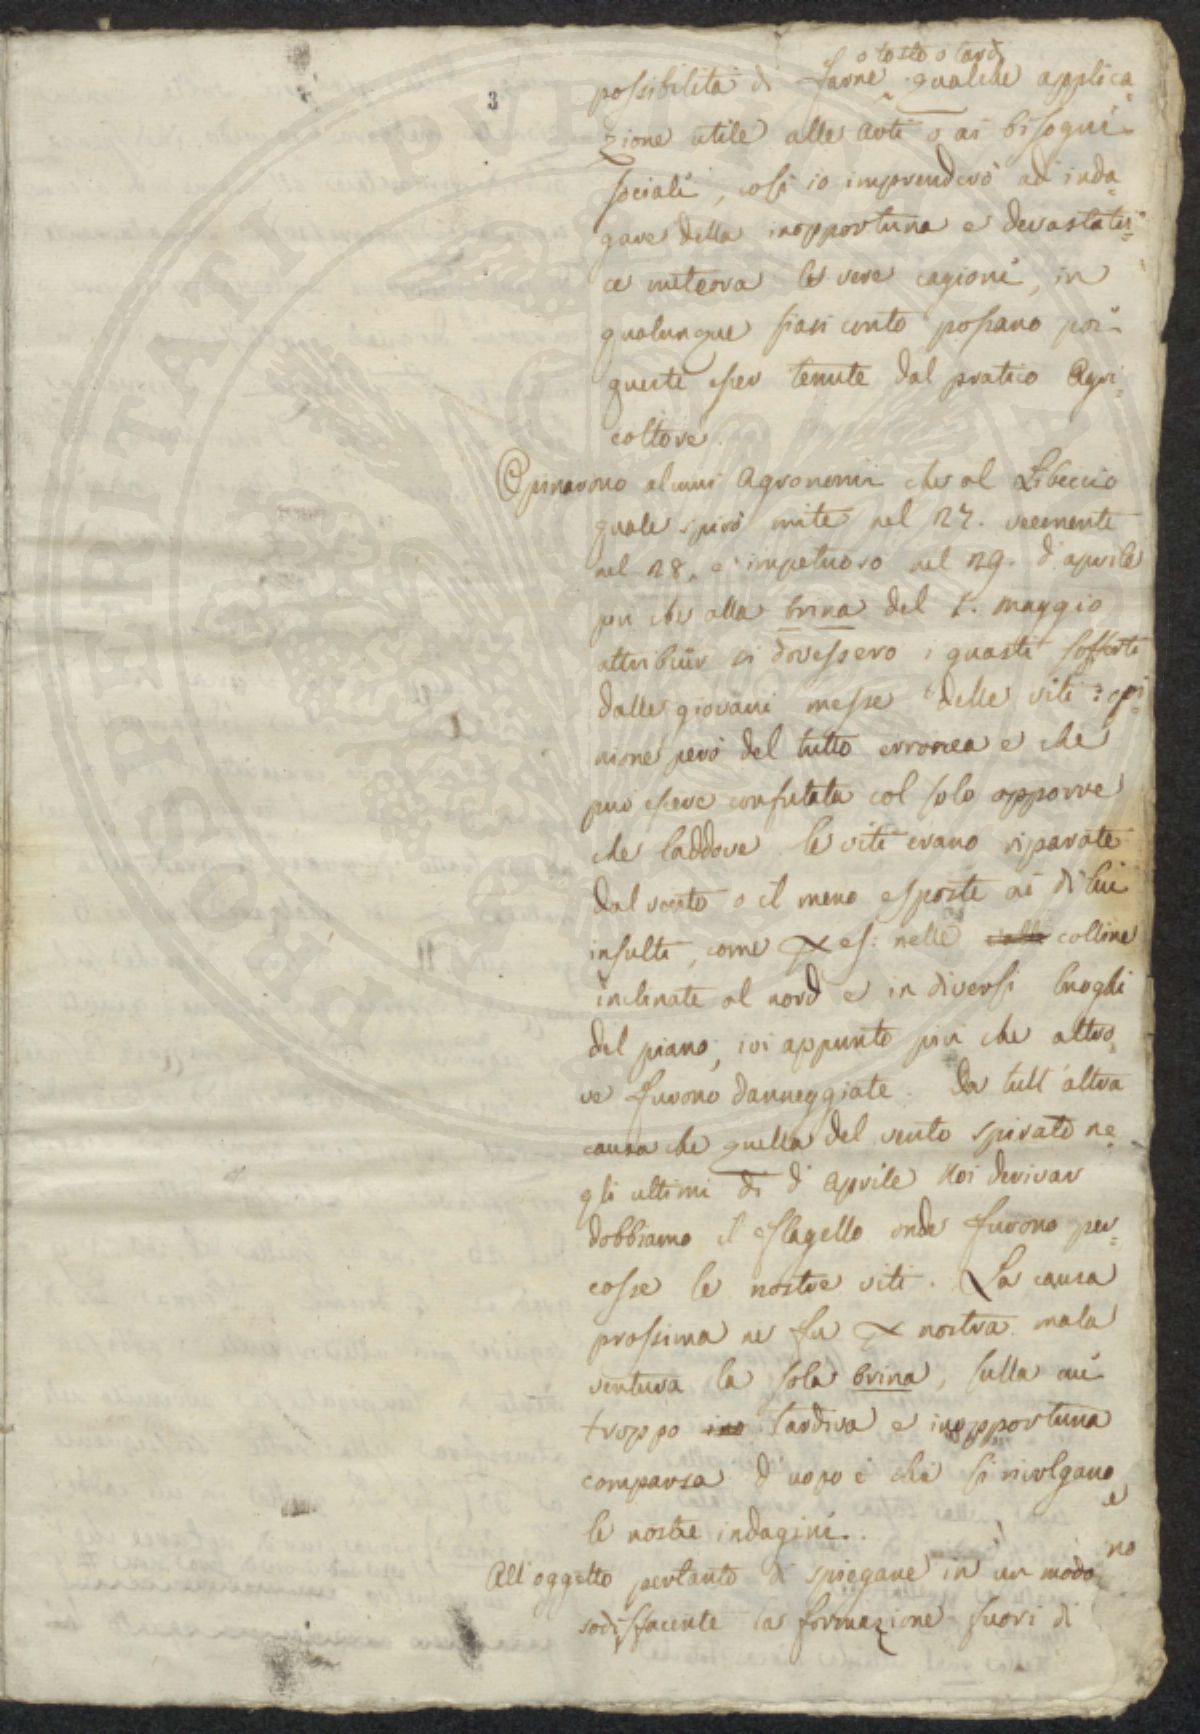 3
o tosto o tardi
possibilità di farne qualche applica=
zione utile alle arti o ai bisogni
sociali, così io imprenderò ad inda=
gare della inopportuna e devastatri=
ce meteora le vere cagioni, in
qualunque siasi conto possano poi
queste esser tenute dal pratico Agri=
coltore.
Opinarono alcuni Agronomi che al Libeccio
quale spirò mite nel 27. veemente
nel 28, e impetuoso nel 29. d'aprile
più che alla brina del 1. maggio
attribuir si dovessero i guasti sofferti
dalle giovani messe delle viti: opi=
nione però del tutto erronea e che
può essere confutata col solo opporre
che laddove le viti erano riparate
dal vento o il meno esposte ai di lui
insulti, come p es: nelle valli colline
inclinate al nord e in diversi luoghi
del piano, ivi appunto più che altro=
ve furono danneggiate. Da tutt'altra
causa che quella del vento spirato ne=
gli ultimi dì d'Aprile noi derivar
dobbiamo il flagello onde furono per=
cosse le nostre viti. La causa
prossima ne fu p nostra mala
ventura la sola brina, sulla cui
troppo ino tardiva e inopportuna
comparsa d'uopo è che si rivolgano
le nostre indagini.
All'oggetto pertanto di spiegare in un modo
sodisfacente la formazione fuori di